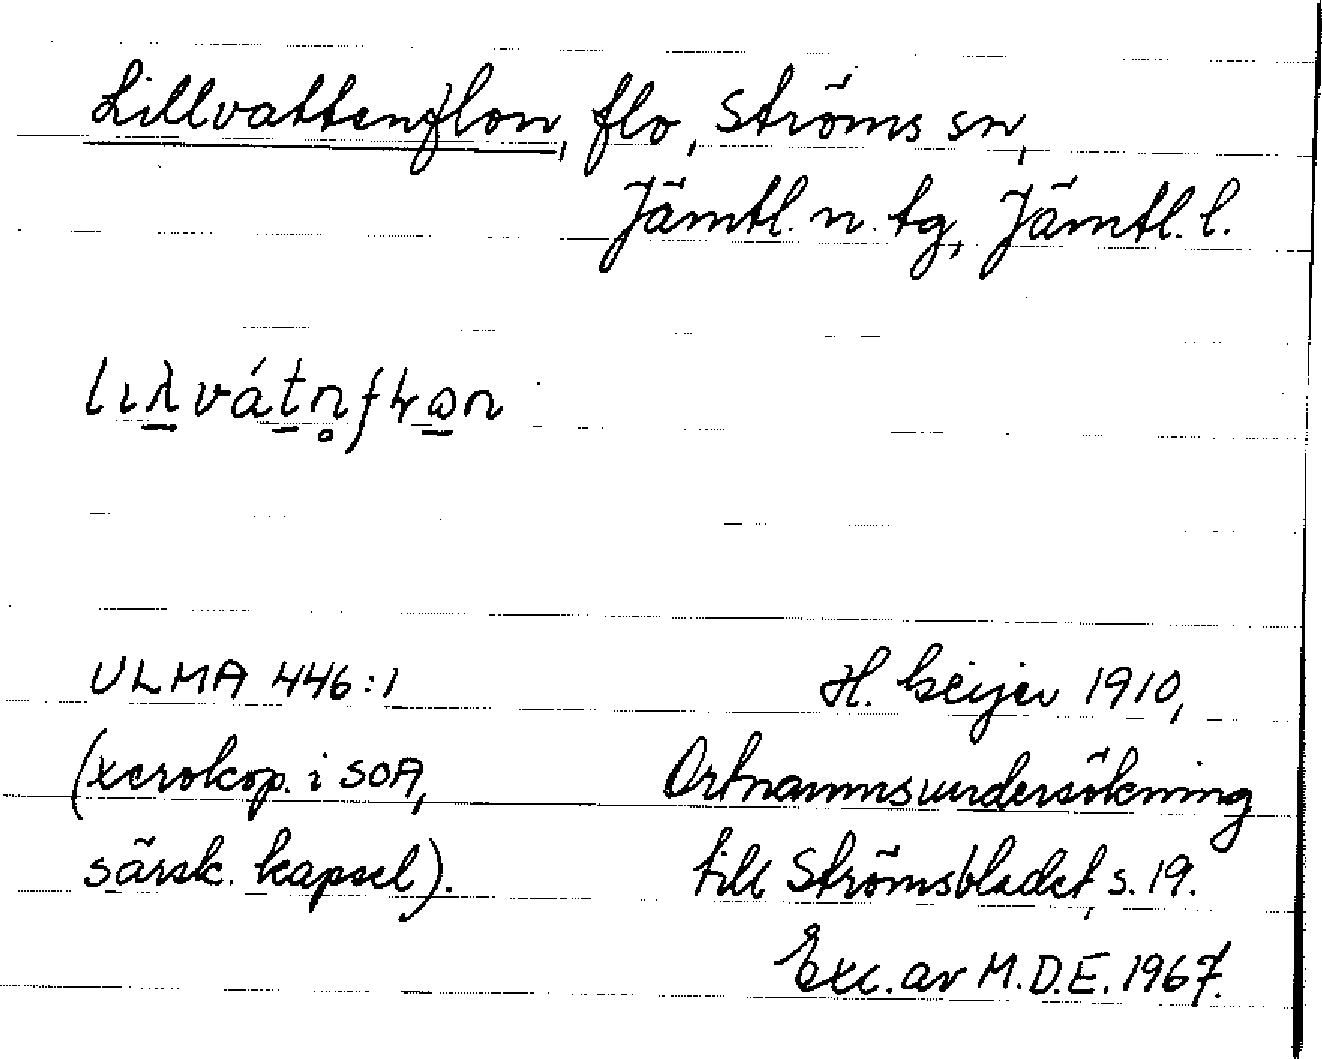 Lillvattenflon, flo, Ströms sn,
Jämtl. n. tg, Jämtl. l.
lıʎvát̠n̥fɬɷn
ULMA 446:1
H. Geijer 1910,
(xerokop. i SOA,
Ortnamnsundersökning
särsk. kapsel).
till Strömsbladet, s. 19.
Exc. av M.D.E. 1967.